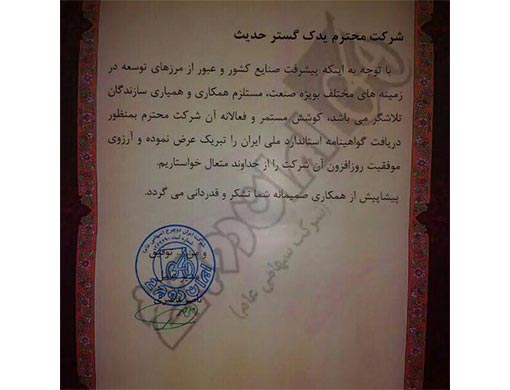 شرکت محترم یدک گستر حدیث
با توجه به اینکه پیشرفت صنایع کشور و عبور از مرزهای توسعه در
زمینه های مختلف بویژه صنعت، مستلزم همکاری و همیاری سازندگان
تلاشگر می باشد، کوشش مستمر و فعالانه آن شرکت محترم بمنظور
دریافت گواهینامه استاندارد ملی ایران را تبریک عرض نموده و آرزوی
موفقیت روزافزون آن شرکت را از خداوند متعال خواستاریم.
پیشاپیش از همکاری صمیمانه شما تشکر و قدردانی می گردد.
ایران دوچرخ
(شرکت سهامی عام)